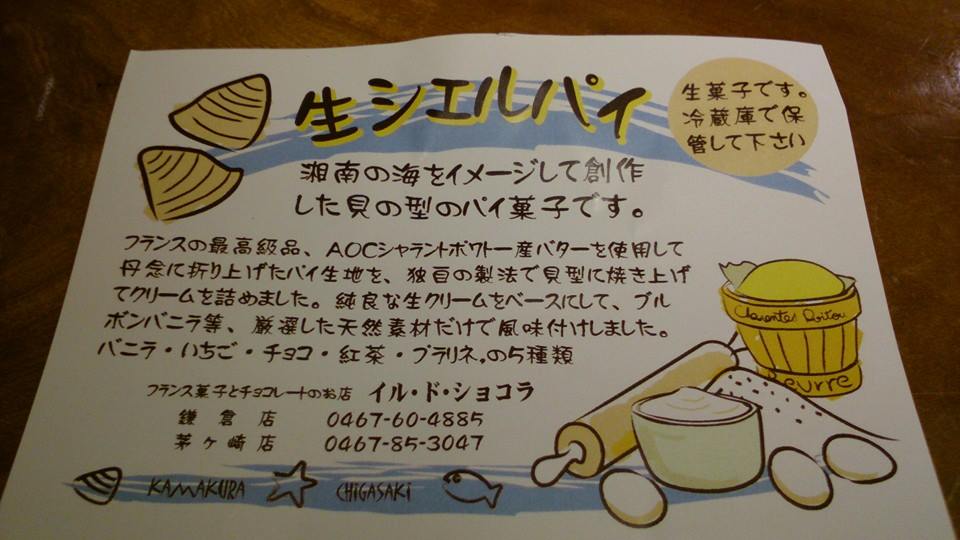 生シェルパイ
生菓子です。
冷蔵庫で保
管して下さい
湘南の海をイメージして創作
した貝の型のパイ菓子です。
フランスの最高級品、AOCシャラントポワトー産バターを使用して
丹念に折り上げたパイ生地を、独自の製法で貝型に焼き上げ
てクリームを詰めました。純良な生クリームをベースにして、ブル
ボンバニラ等、厳選した天然素材だけで風味付けしました。
バニラ・いちご・チョコ・紅茶・プラリネ。の5種類
フランス菓子とチョコレートのお店 イル・ド・ショコラ
鎌倉店 0467-60-4885
茅ヶ崎店 0467-85-3047
KAMAKURA CHIGASAKI
Charentes Poitou
Beurre